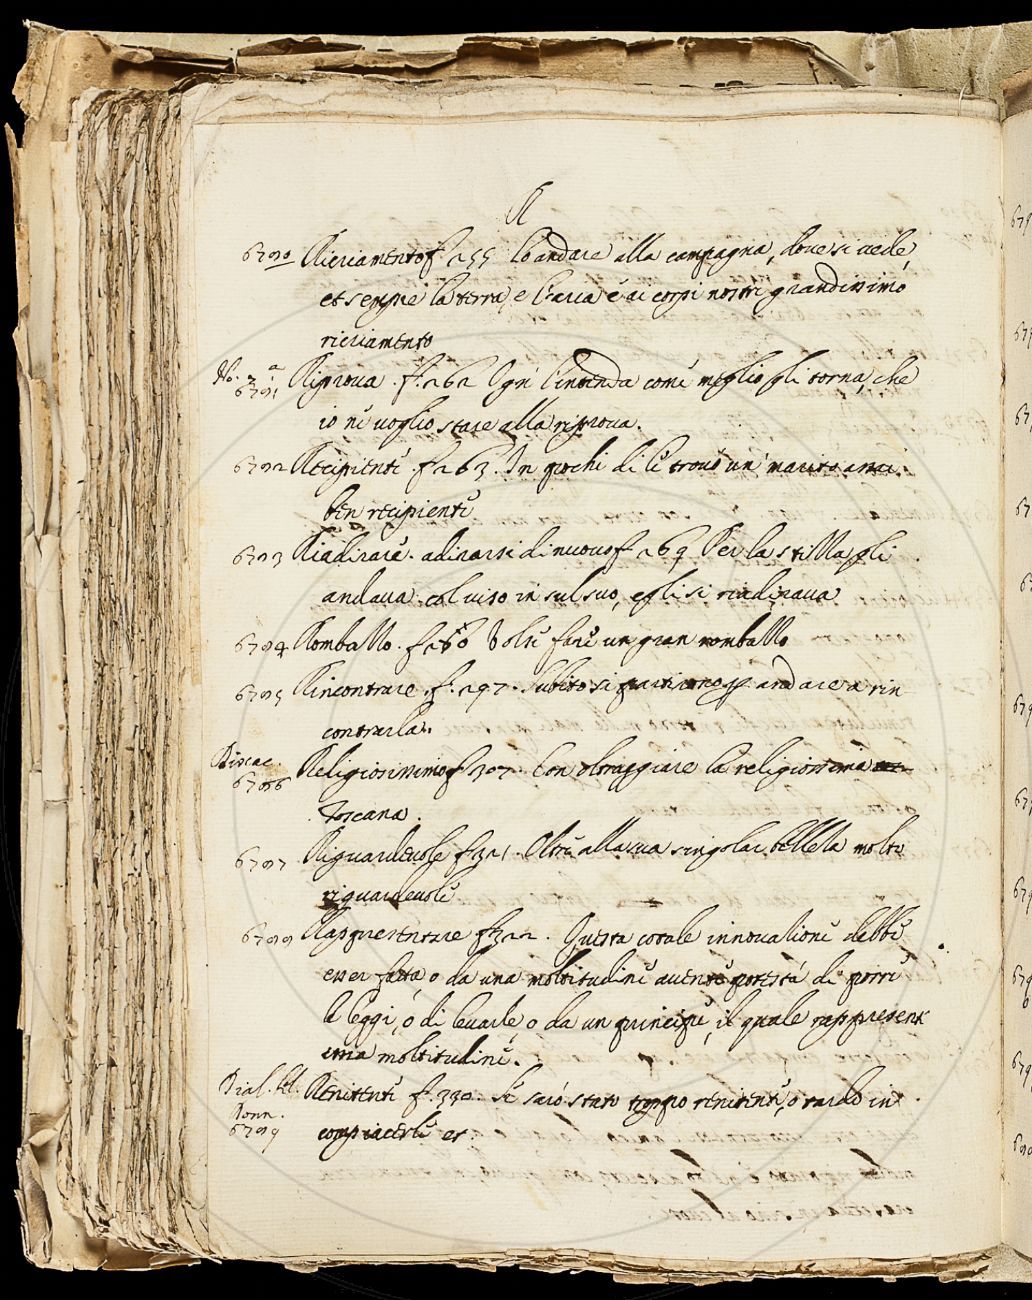 R
6790 Ricriamento f. 255 Lo andare alla campagna, dove si vede,
et sempre la terra, e l'aria è ai corpi nostri grandissimo
ricriamento
No. 2.a
6791 Riprova. f. 262 Ogni l'intenda come meglio gli torna, che
io ne voglio stare alla riprova.
6792 Recipiente. f. 263. In pochi dì le trovò un marito assai
ben recipiente
6793 Riadirare. adirarsi di nuovo f. 269 Per la stilla gli
andava col viso in sul suo, egli si riadirava
6794 Romballo. f. 280 Volse fare un gran romballo
6795 Rincontrare. f. 297. Subito si partirono per andare a rin
contrarla.
Discac.
6796 Religiosissimo f. 307. Con oltraggiare la religiosissima
Toscana.
6797 Riguardevole f. 321. Oltre alla sua singolar bellezza molto
riguardevole
6798 Rappresentare f. 322. Questa cotale innovazione debbe
esser fatta o da una moltitudine avente potestà di porre
le leggi, o di levarle o da un principe, il quale rappresenti
essa moltitudine.
Dial. bel.
Donn.
6799 Renitente f. 330. Se sarò stato troppo renitente, o tardo in
compiacerle et